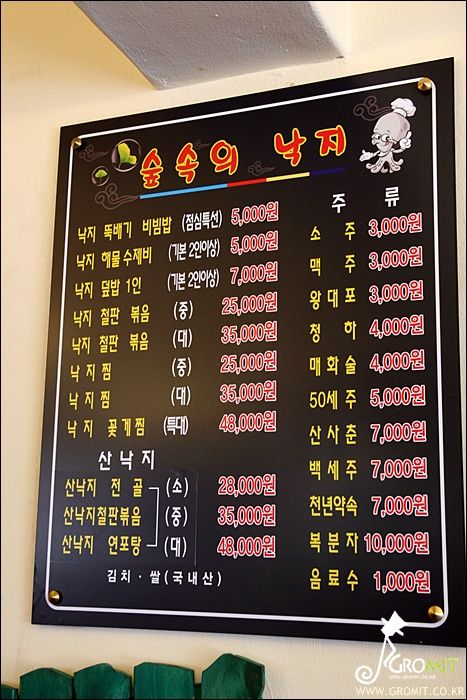 숲속의 낙지
낙지 뚝배기 비빔밥 (점심특선) 5,000원
낙지 해물수제비 (기본 2인이상) 5,000원
낙지 덮밥 1인 (기본 2인이상) 7,000원
낙지 철판 볶음 (중) 25,000원
낙지 철판 볶음 (대) 35,000원
낙지찜 (중) 25,000원
낙지찜 (대) 35,000원
낙지 꽃게찜 (특대) 48,000원
산낙지
산낙지 전골 (소) 28,000원
산낙지철판볶음 (중) 35,000원
산낙지 연포탕 (대) 48,000원
김치 · 쌀(국내산)
주류
소주 3,000원
맥주 3,000원
왕대포 3,000원
청하 4,000원
매화술 4,000원
50세주 5,000원
산사춘 7,000원
백세주 7,000원
천년약속 7,000원
복분자 10,000원
음료수 1,000원
GROMIT
WWW.GROMIT.CO.KR
© WWW.GROMIT.CO.KR